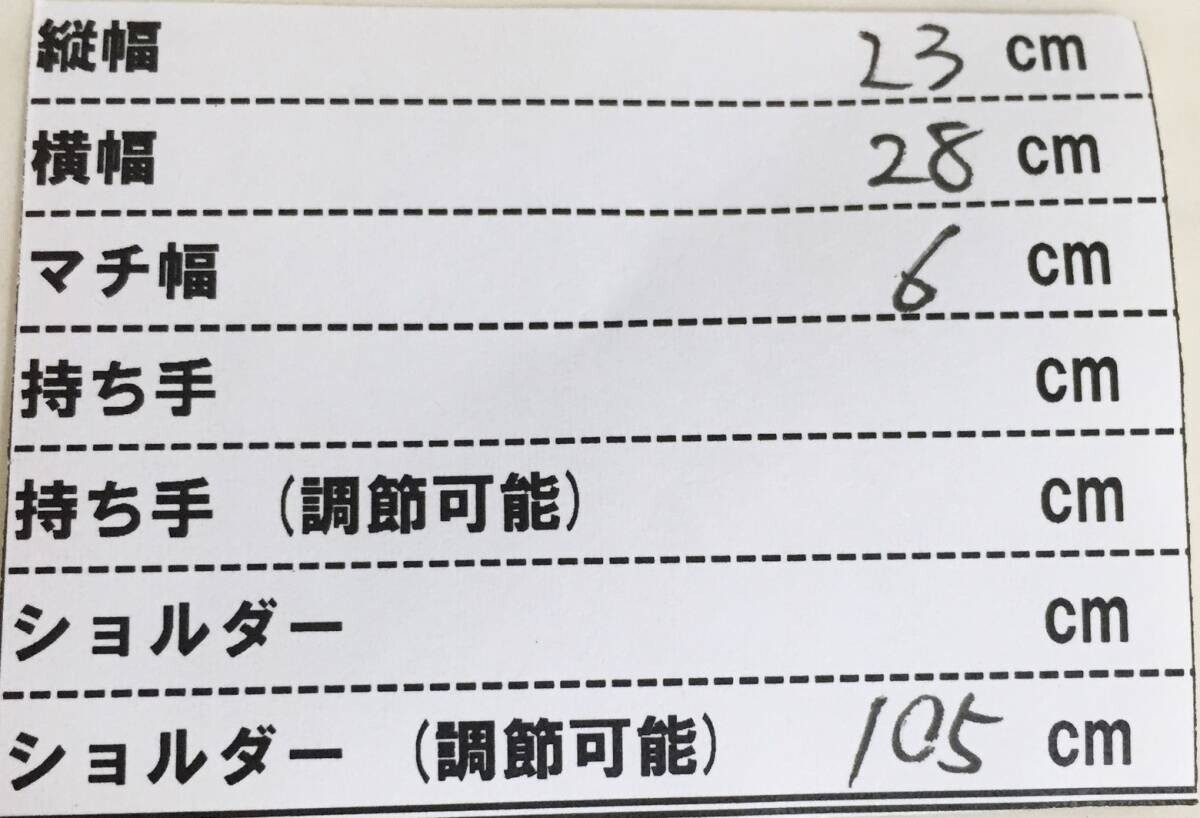 縦幅 23 cm
横幅 28 cm
マチ幅 6 cm
持ち手 cm
持ち手 (調節可能) cm
ショルダー cm
ショルダー (調節可能) 105 cm